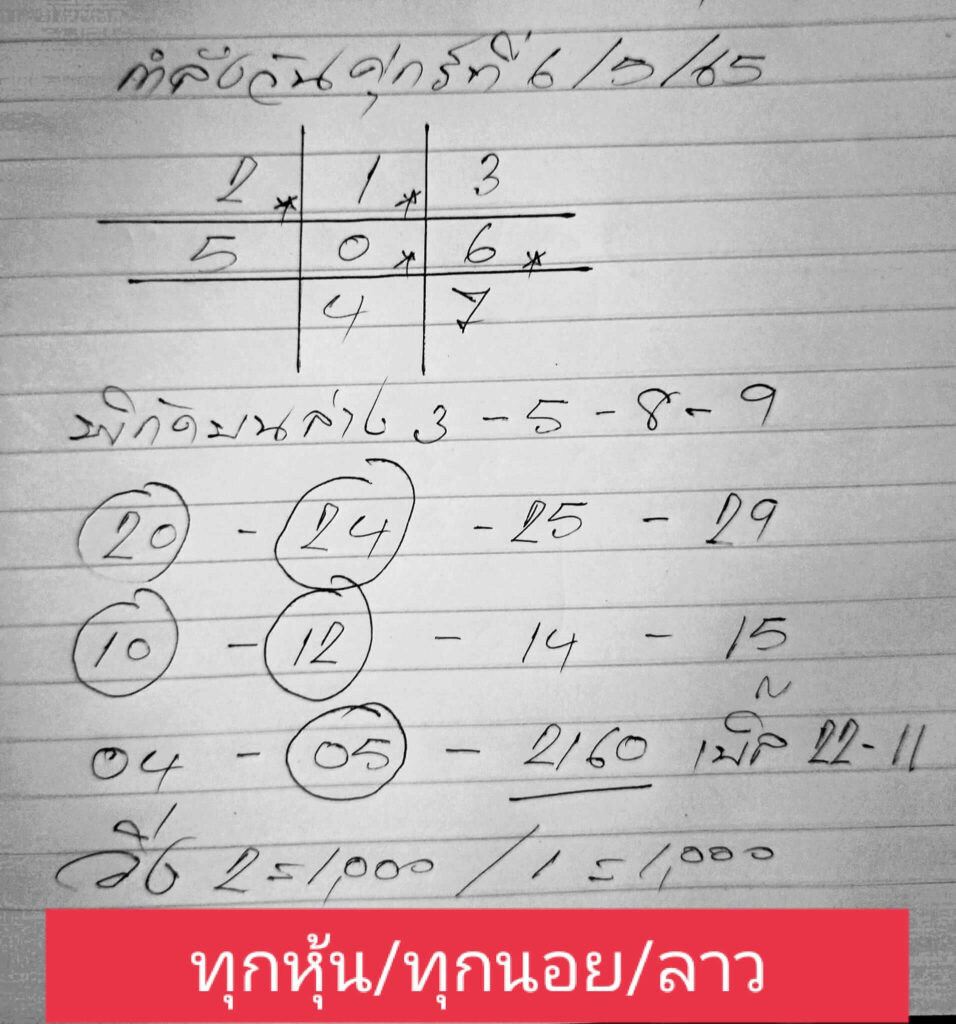 กำลังวันศุกร์ที่ 6/5/65
2* 1* 3
5 0* 6*
4 7
พิกัดบนล่าง 3 - 5 - 8 - 9
20 - 24 - 25 - 29
10 - 12 - 14 - 15
04 - 05 - 2160 เบิ้ล 22-11
วิ่ง 2=1,000 / 1=1,000
ทุกหุ้น/ทุกนอย/ลาว